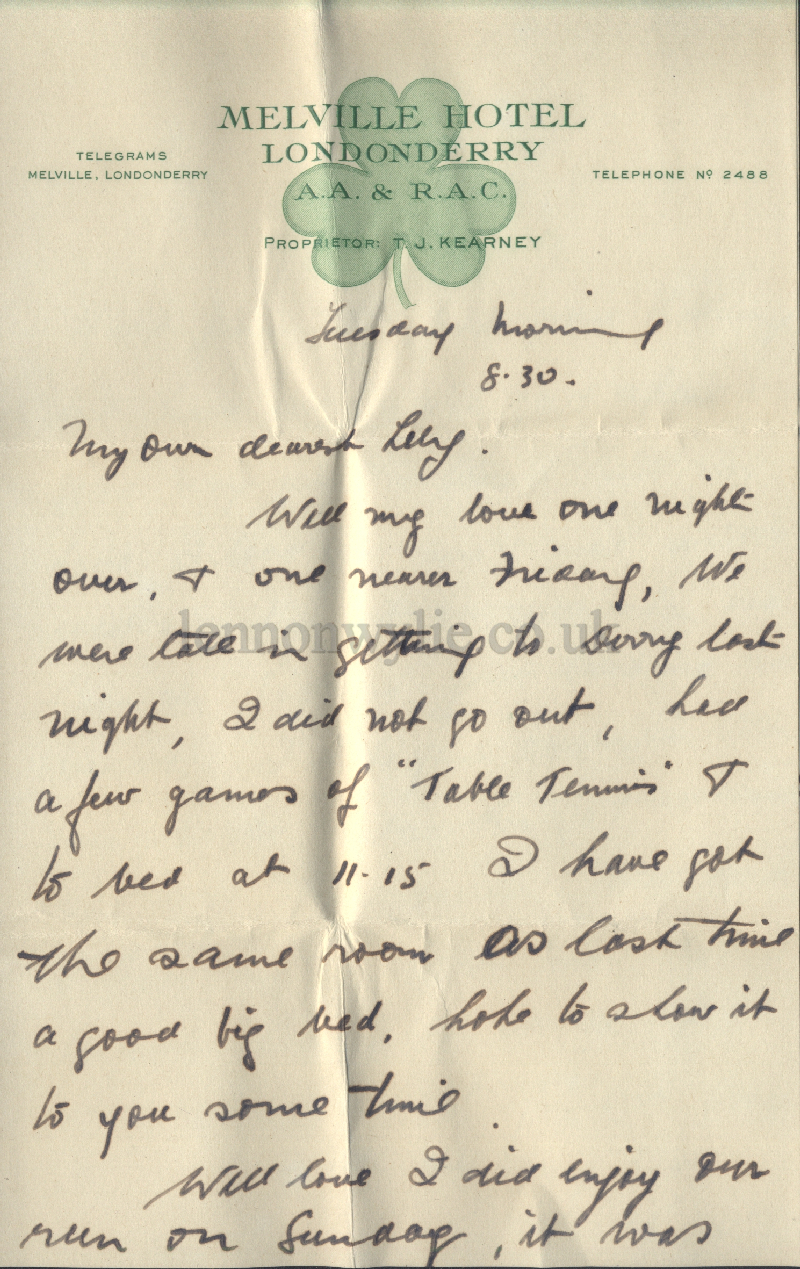 MELVILLE HOTEL
LONDONDERRY
A.A. & R.A.C.
PROPRIETOR: T. J. KEARNEY
TELEGRAMS
MELVILLE, LONDONDERRY
TELEPHONE Nº 2488
Tuesday Morning
8.30.
My own dearest Lily.
Well my love one night
over, & one nearer Friday, We
were late in getting to Derry last
night, I did not go out, had
a few games of "Table Tennis" &
to bed at 11.15 I have got
the same room as last time
a good big bed, hope to show it
to you some time
Well love I did enjoy our
run on Sunday, it was
lennonwylie.co.uk